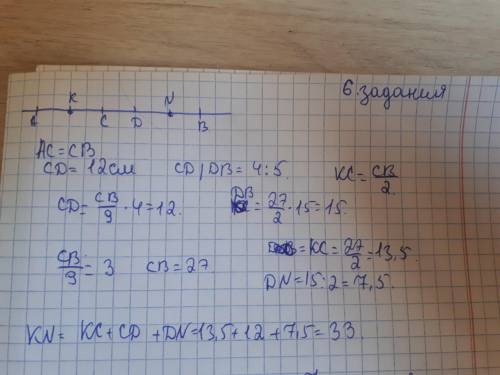 6. задания
K N
A C D B
AC=CB
CD= 12см CD/DB= 4:5. KC= CB/2
CD= CB/9 · 4=12. DB = 27/2 · 15=15.
CB/9 = 3 CB=27 = KC= 27/2 =13,5.
DN=15:2=7,5.
KN= KC+CD+DN=13,5+12+7,5=33.